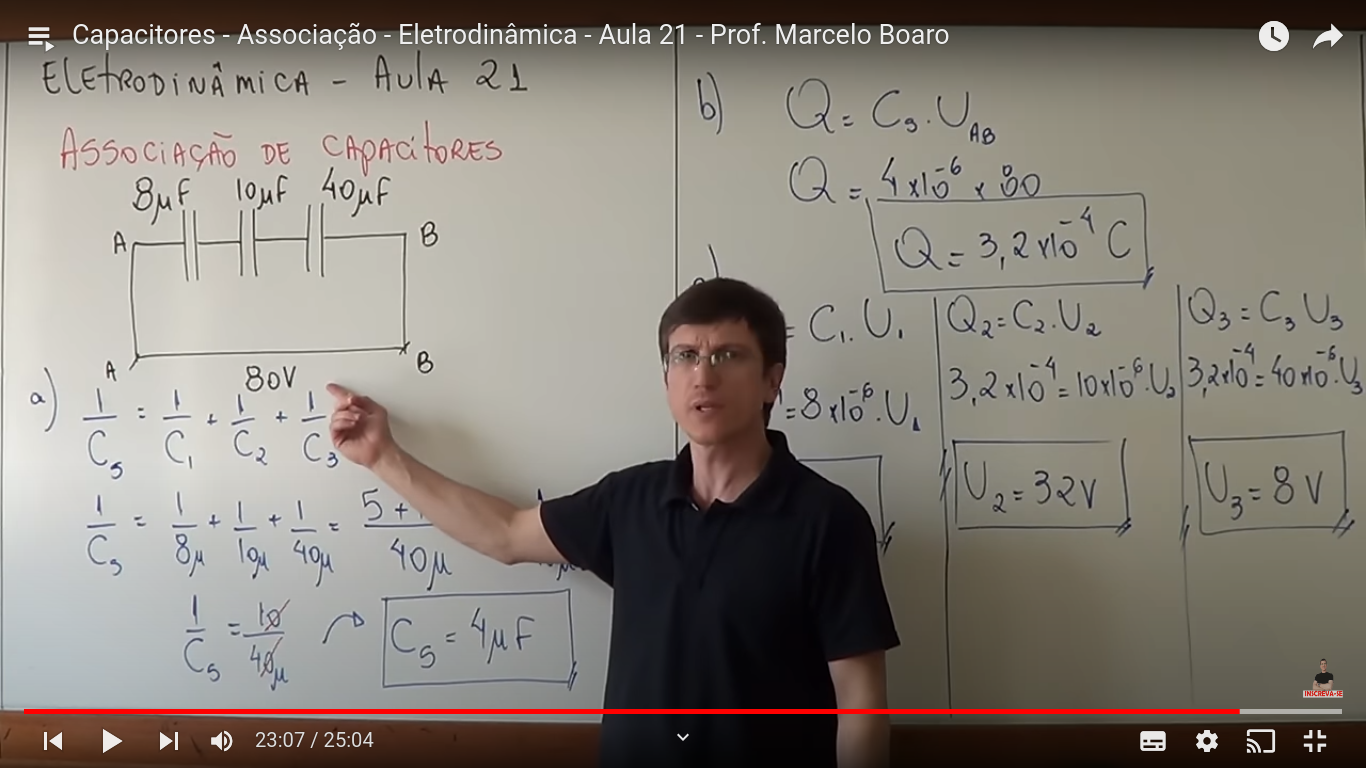 Capacitores - Associação - Eletrodinâmica - Aula 21 - Prof. Marcelo Boaro
ELEtRODINÂMICA - AULA 21
ASSOCIAÇÃO DE CAPACItORES
8µF 10µF 40µF
A B
A B
80V
a) 1/C_S = 1/C_1 + 1/C_2 + 1/C_3
1/C_S = 1/8µ + 1/10µ + 1/40µ = 5+ /40µ
1/C_S = 10/40µ
C_S = 4µF
b) Q = C_S . U_AB
Q = 4x10^-6 x 80
Q = 3,2x10^-4 C
= C_1 . U_1
= 8x10^-6 . U_1
Q_2 = C_2 . U_2
3,2x10^-4 = 10x10^-6 . U_2
U_2 = 32V
Q_3 = C_3 U_3
3,2x10^-4 = 40x10^-6 . U_3
U_3 = 8V
INSCREVA-SE
23:07 / 25:04